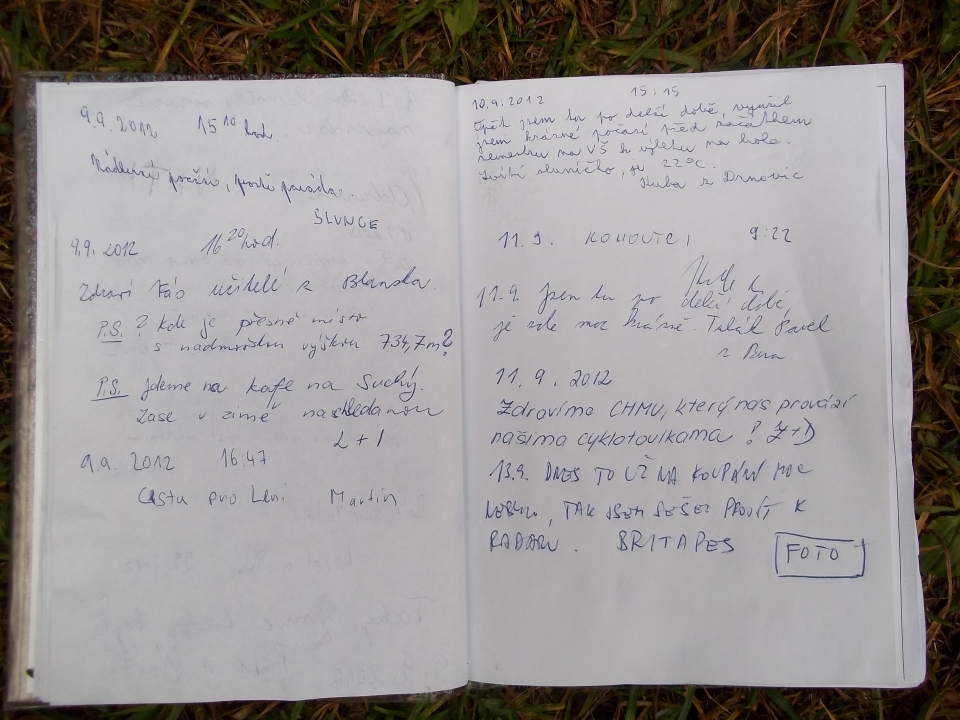 9.9.2012 15¹⁰ hod.
Nádherné počasí, prostě paráda.
SLUNCE
9.9.2012 16²⁰ hod.
Zdraví Vás učitelé z Blanska.
P.S. ? kde je přesně místo
s nadmořskou výškou 734,7m?
P.S. Jdeme na kafe na Suchý.
Zase v zimě naschledanou
L + I
9.9. 2012 16:47
Cestu pro Leni Martin
10.9.2012 15:15
Opět jsem tu po delší době, využil
jsem krásné počasí před začátkem
semestru na VŠ k výletu na kole.
Svítí sluníčko, je 22°C.
Kuba z Drnovic
11.9. KOHOUTCI 9:22
11.9. Jsem tu po delší době,
je zde moc krásně. Pavel
z Brna
11.9.2012
Zdravíme CHMU, který nás provází
našima cyklotoulkama! Z+D
13.9. DNES TO UŽ NA KOUPÁNÍ MOC
NEBYLO, TAK JSEM SEŠEL PROJÍT K
RADARU. BRITAPES
FOTO